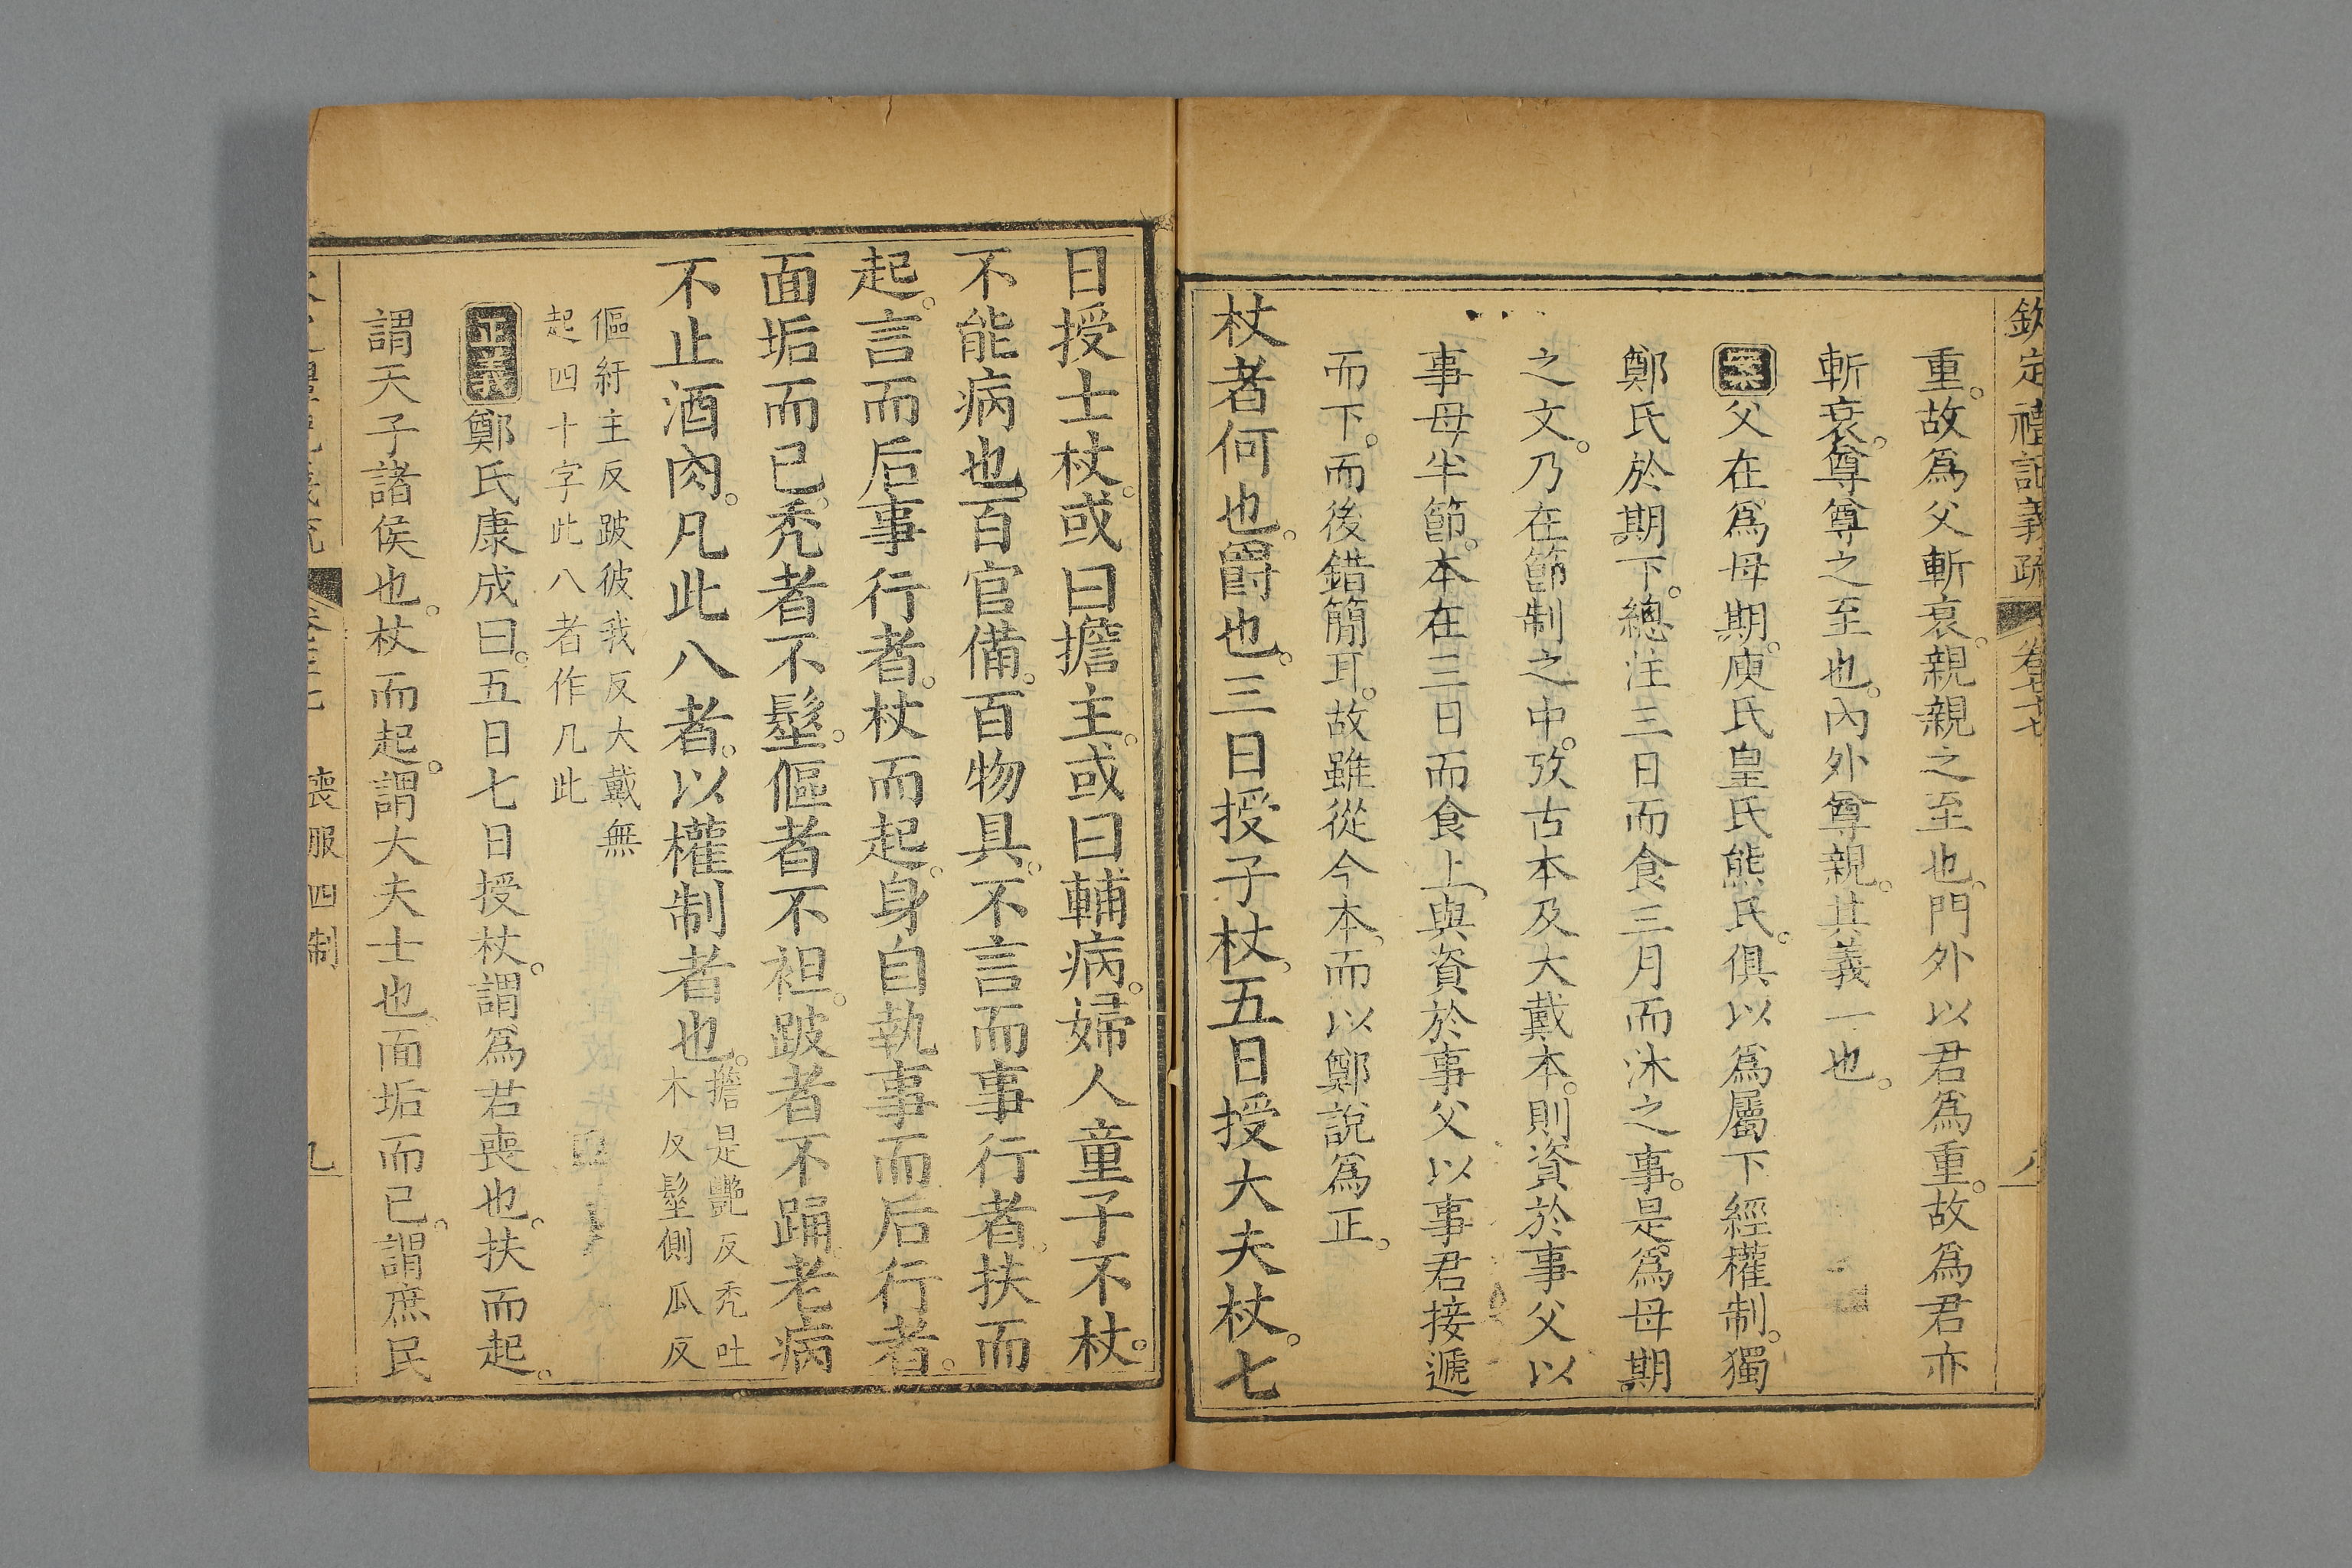 欽定禮記義疏 卷七十七 八
重。故爲父斬衰。親親之至也。門外以君爲重。故爲君亦
斬衰。尊尊之至也。內外尊親。其義一也。
案父在爲母期。庾氏皇氏熊氏。俱以爲屬下經權制。獨
鄭氏於期下。總注三日而食三月而沐之事。是爲母期
之文。乃在節制之中。攷古本及大戴本。則資於事父以
事母半節。本在三日而食上。與資於事父以事君接遞
而下。而後錯簡耳。故雖從今本。而以鄭說爲正。
杖者何也。爵也。三日授子杖。五日授大夫杖。七
日授士杖。或曰擔主。或曰輔病。婦人童子不杖。
不能病也。百官備。百物具。不言而事行者。扶而
起。言而后事行者。杖而起。身自執事而后行者。
面垢而已。禿者不髽。傴者不袒。跛者不踊。老病
不止酒肉。凡此八者。以權制者也。擔是豔反禿吐
木反髽側瓜反
傴紆主反跛彼我反大戴無
起四十字此八者作凡此
正義鄭氏康成曰。五日七日授杖。謂爲君喪也。扶而起。
謂天子諸侯也。杖而起。謂大夫士也面垢而已。謂庶民
喪服四制 九